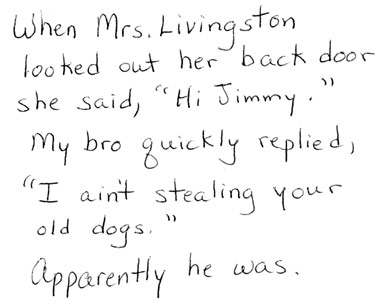 When Mrs. Livingston
looked out her back door
she said, "Hi Jimmy."
My bro quickly replied,
"I ain't stealing your
old dogs."
Apparently he was.